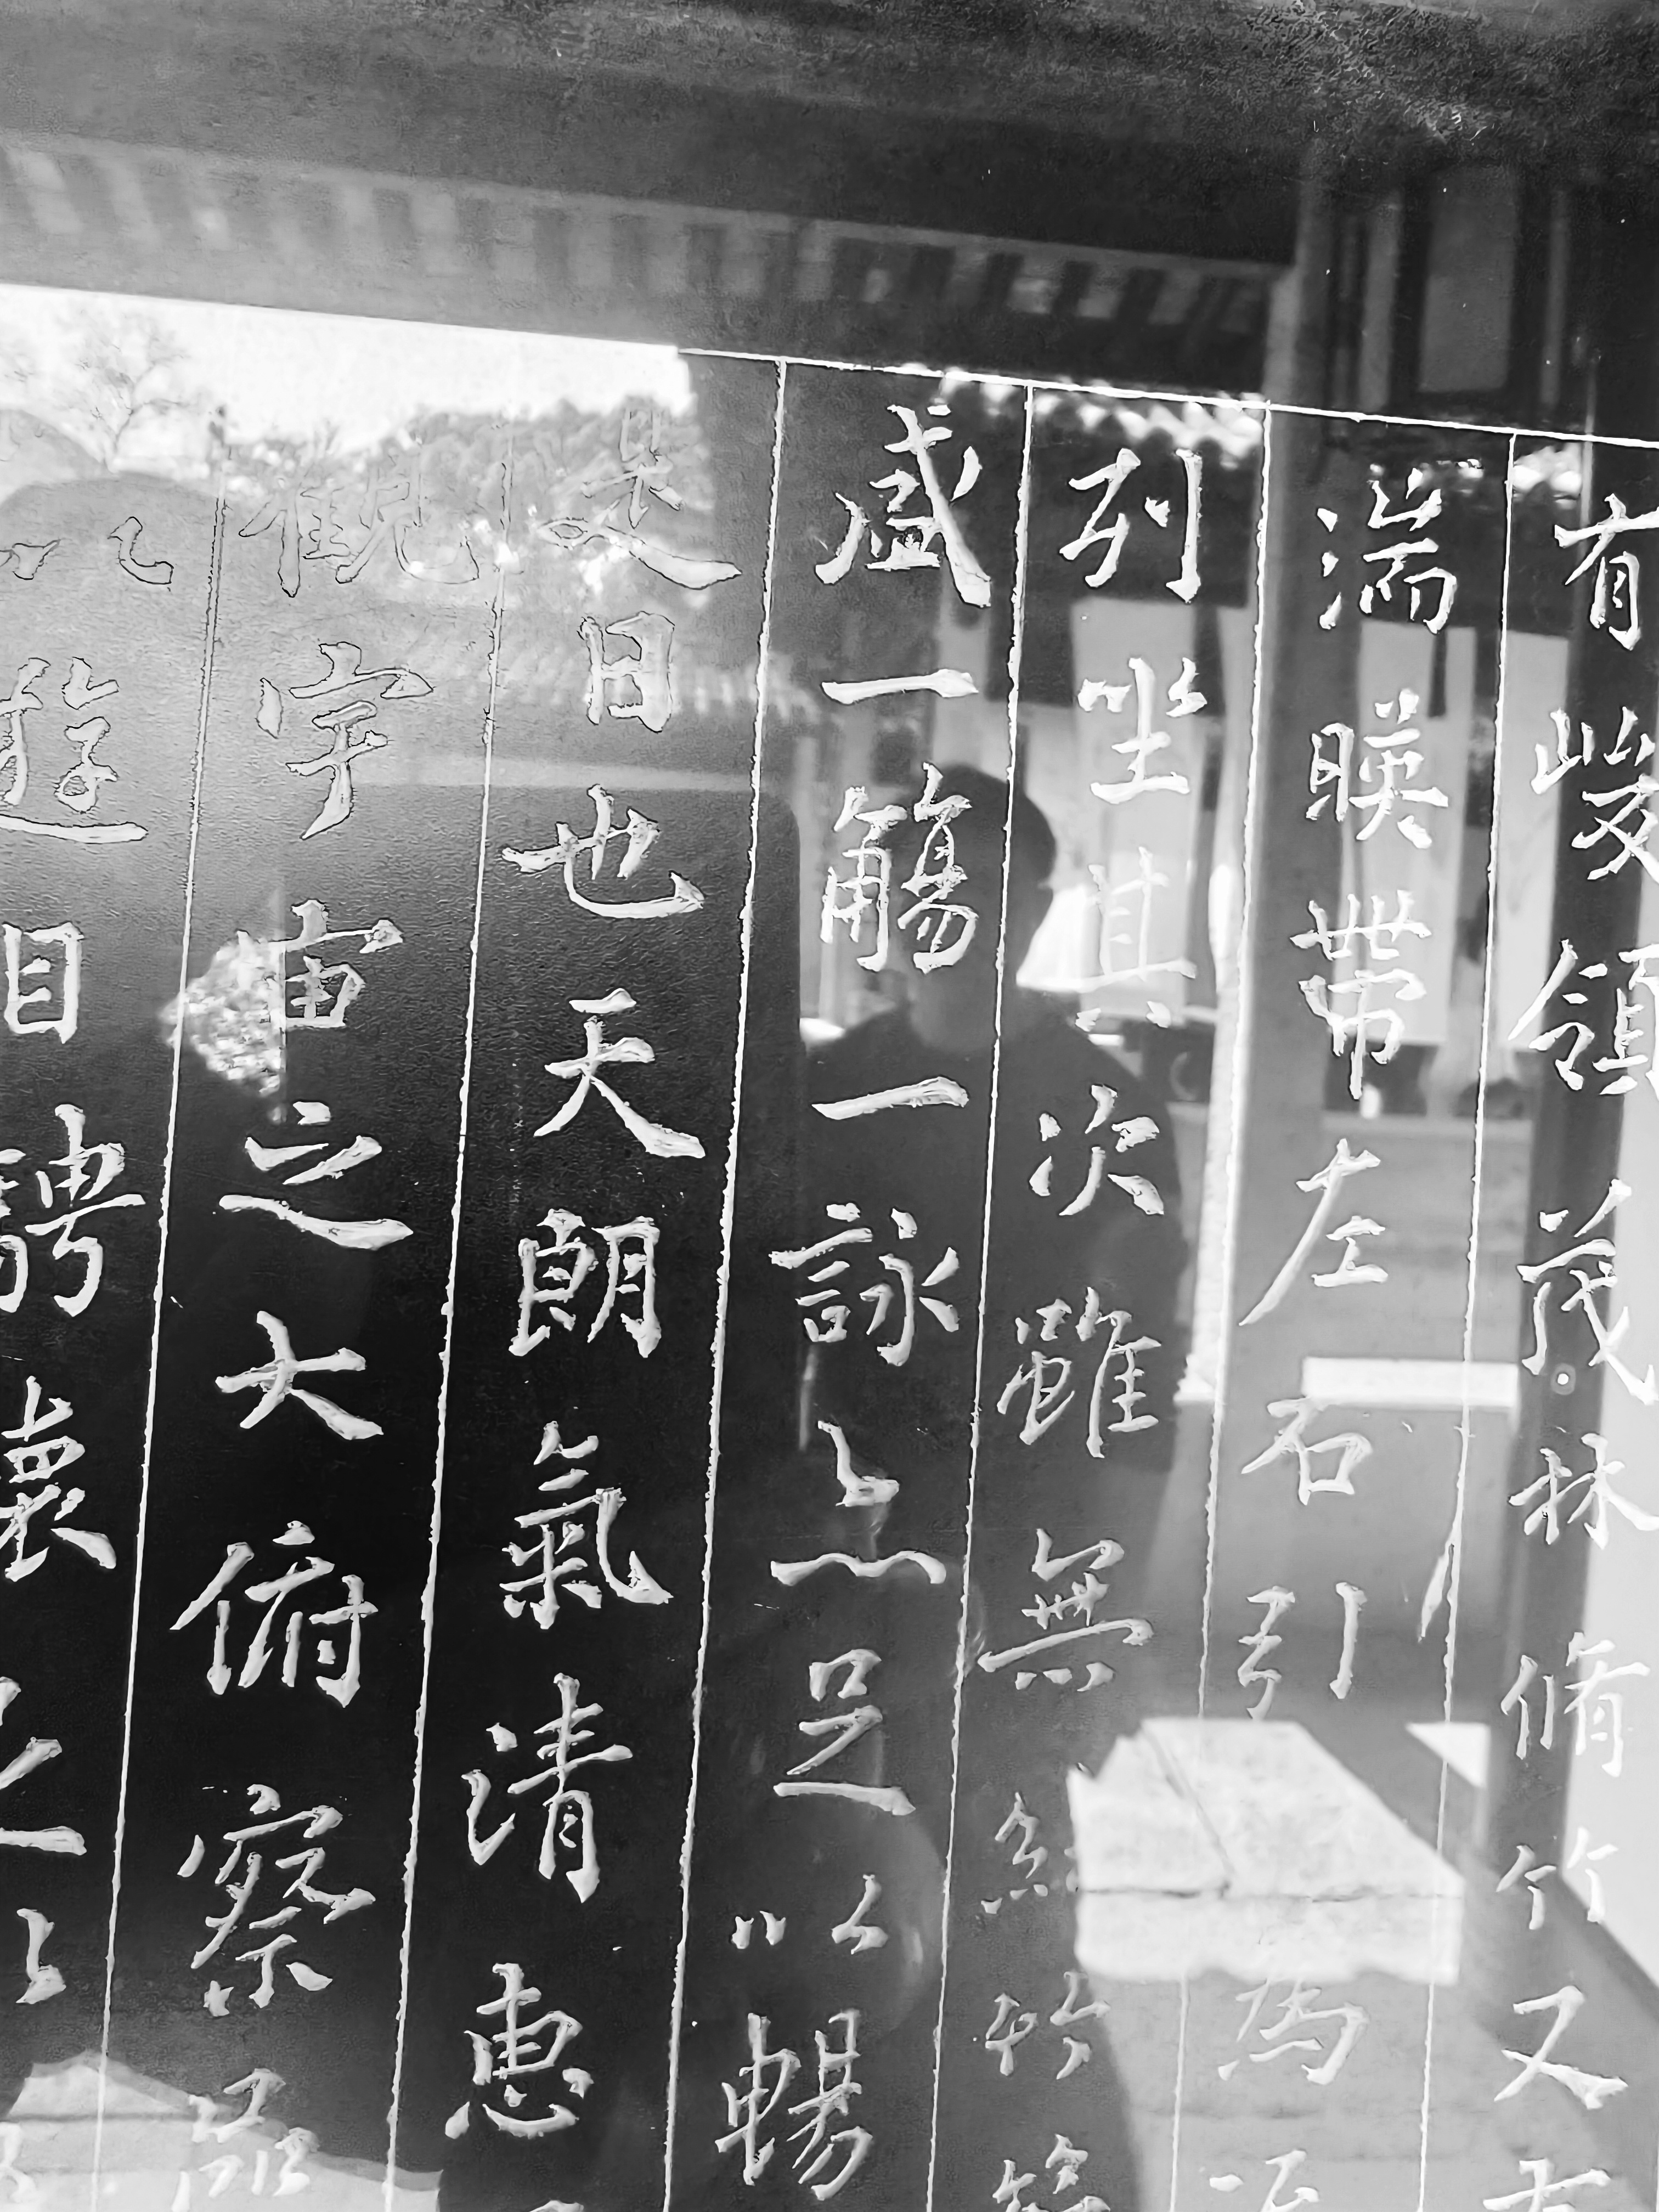 有峻領茂林脩竹又
湍暎帶左右引為
列坐其次雖無絲竹管
盛一觴一詠亦足以暢
是日也天朗氣清惠
觀宇宙之大俯察品
以遊目騁懷足以